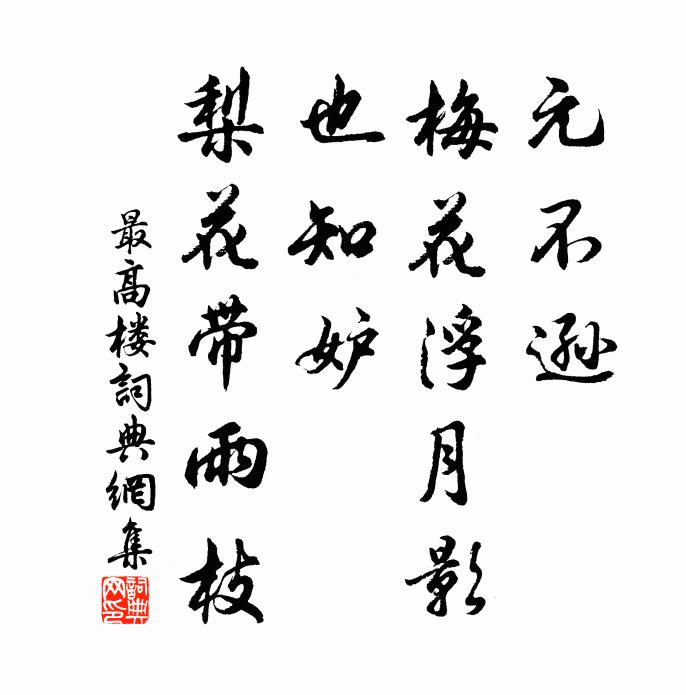 元不逊
梅花浮月影
也知妒
梨花带雨枝
最高楼詞典網集
詞典网印